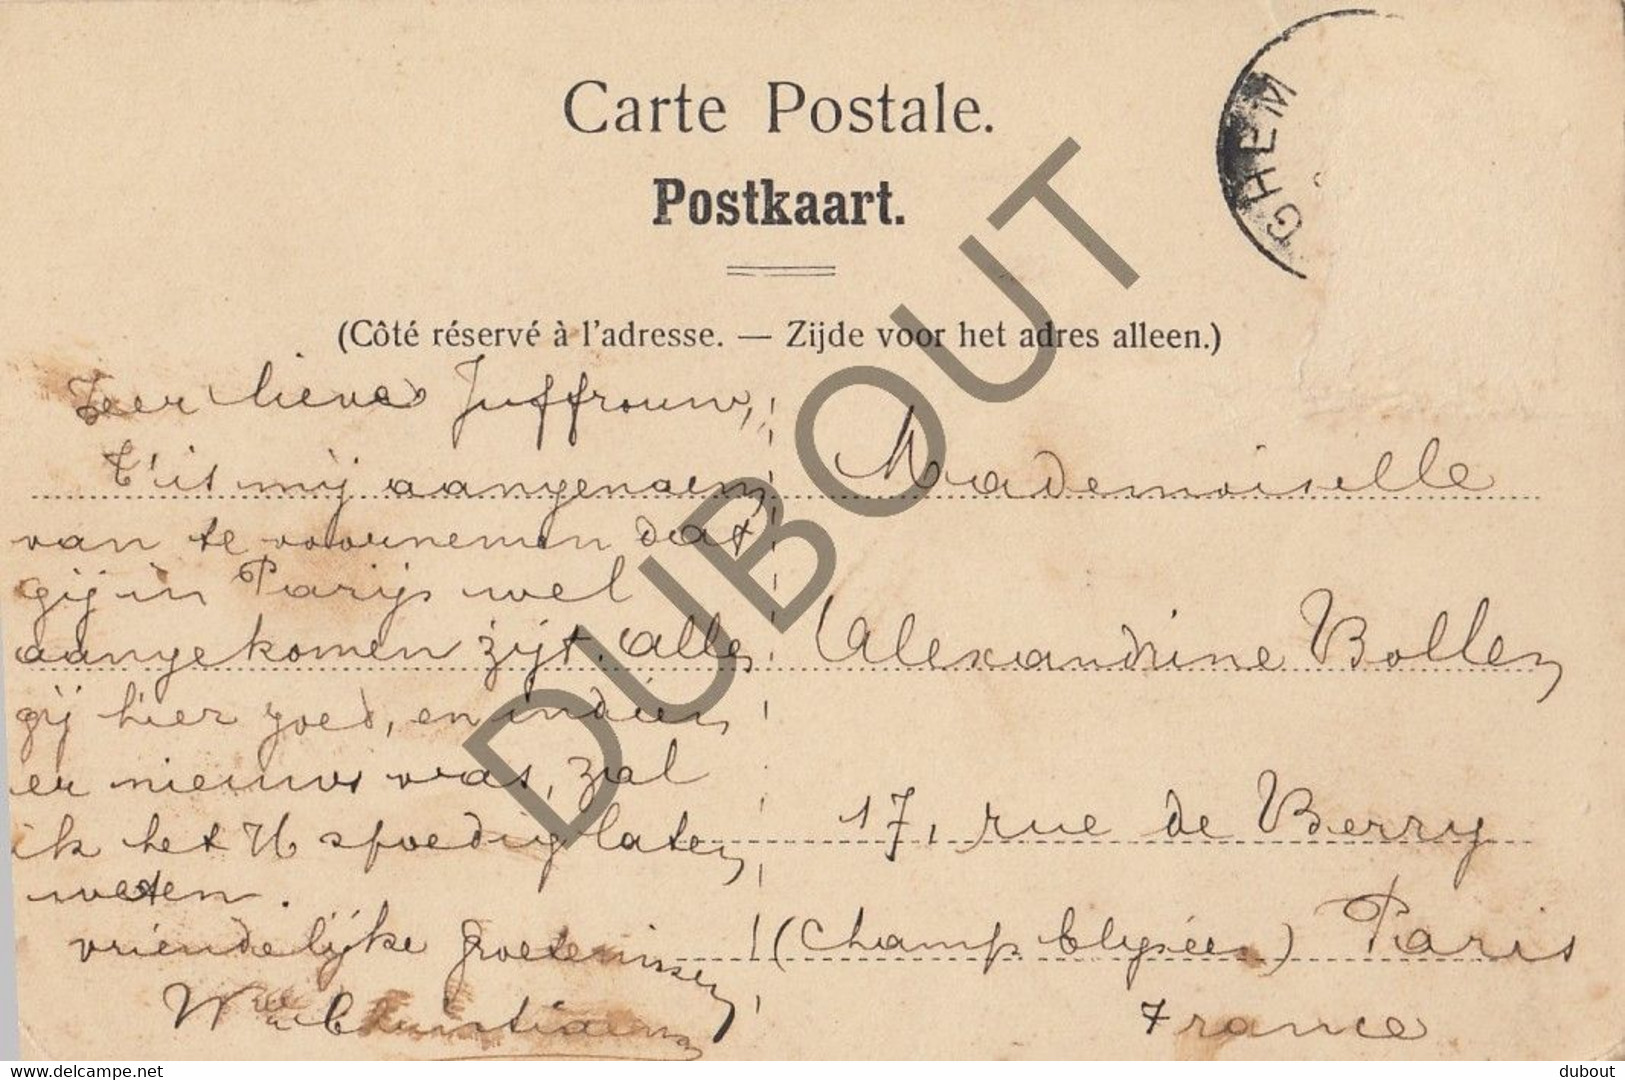 Carte Postale.
Postkaart.
(Côté réservé à l'adresse. — Zijde voor het adres alleen.)
GHEM
Zeer lieve Juffrouw,
t'is mij aangenaem
van te voornemen dat
gij in Parijs wel
aangekomen zijt. alles
gij hier goed, en indien
er nieuws was, zal
ik het U spoedig laten
weten.
vriendelijke groetenissen
Christiaens
Mademoiselle
Alexandrine Bollen
17, rue de Berry
(Champs Elysées) Paris
France
DUBOUT
delcampe.net
dubout